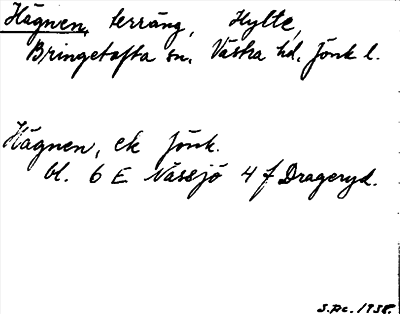 Hägnen, terräng, Hylte,
Bringetofta sn, Västra hd, Jönk l.
Hägnen, ek Jönk.
bl. 6 E Nässjö 4 f Drageryd.
S.Dc. 1938.